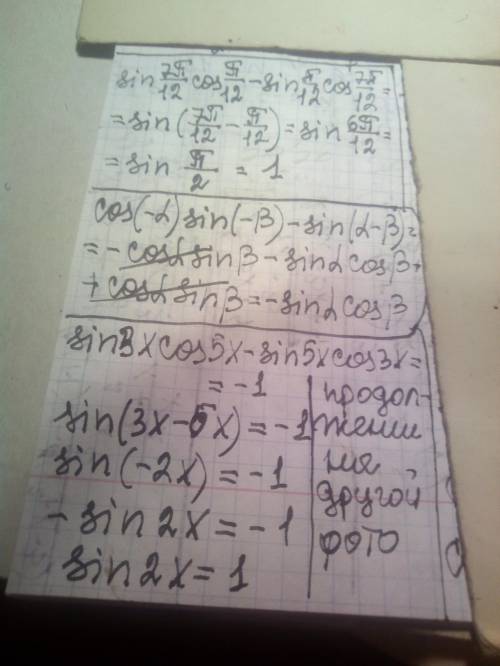 sin 7π/12 cos π/12 - sin π/12 cos 7π/12 =
= sin (7π/12 - π/12) = sin 6π/12 =
= sin π/2 = 1
cos(-α) sin(-β) - sin(α-β) =
= - cosα sinβ - sinα cosβ +
+ cosα sinβ = - sinα cosβ
sin3x cos5x - sin5x cos3x =
= -1
sin(3x-5x) = -1
sin(-2x) = -1
- sin 2x = -1
sin 2x = 1
продол-
жении
на
другой
фото